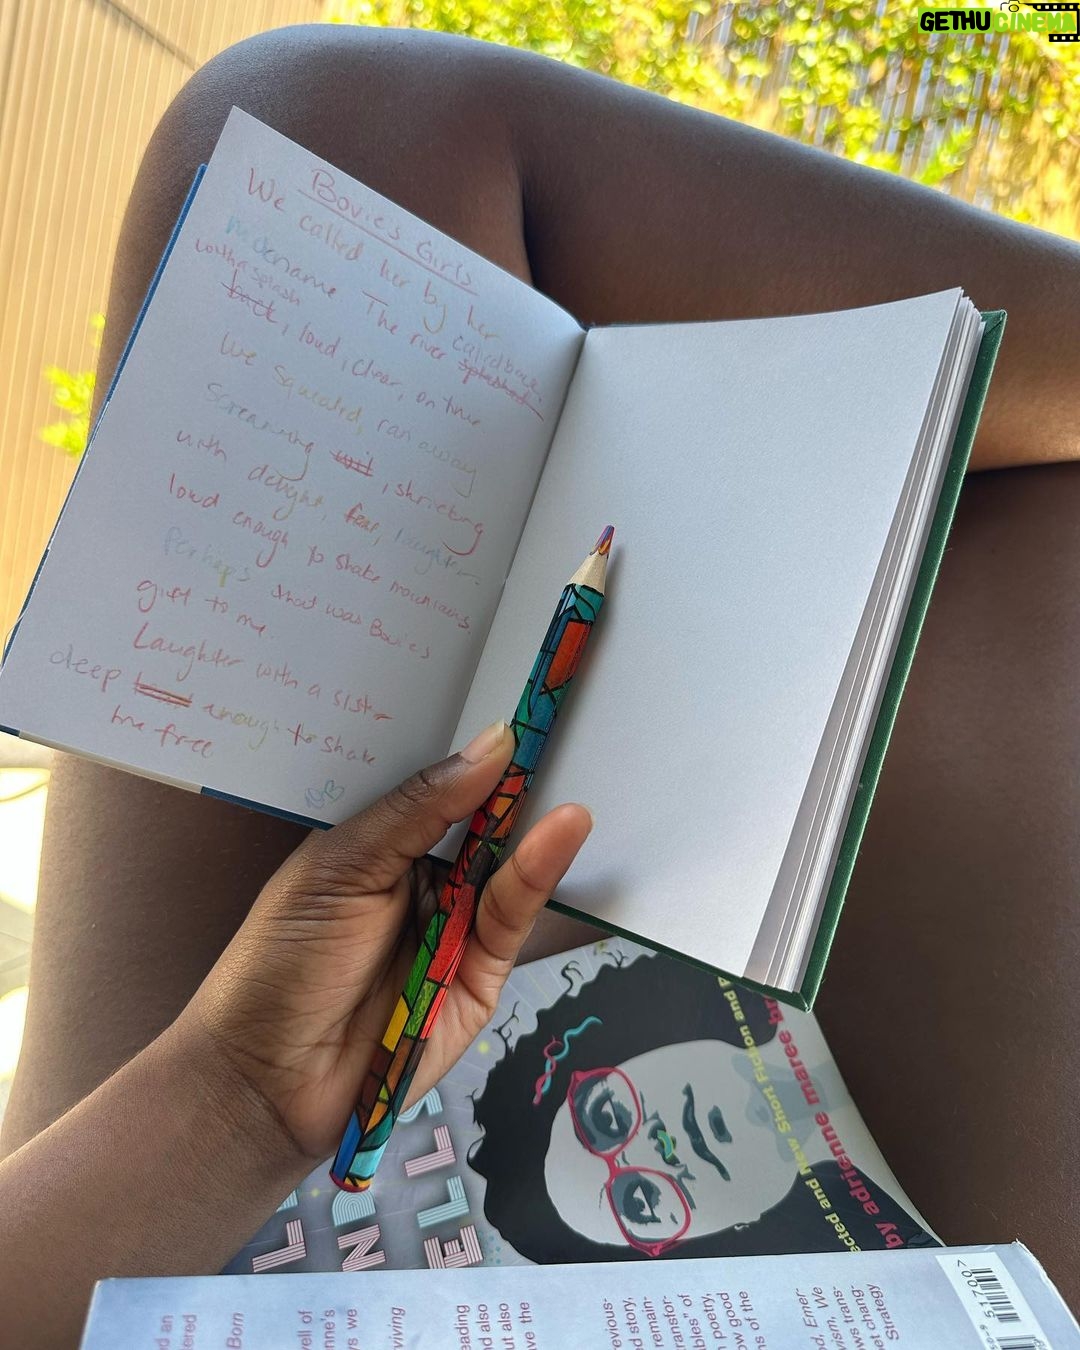 GETHUCINEMA
Bovie's Girls
We called her by her
name. The river called back,
with a splash splashed
back, loud, clear, on time.
We squealed, ran away
screaming, shrieking
with delight, fear, laughter
loud enough to shake mountains.
Perhaps that was Bovies
gift to me.
Laughter with a sister
deep enough to shake
me free
ected and New Short Fiction and P
by adrienne maree br
ELLS
Born
ell of
nne's
s we
viving
eading
nd also
ut also
ve the
revious-
d story,
remain-
transfor-
bles" of
poetry,
ow good
ns of the
od, Emer
vism, We
ws trans-
et chang
Strategy
51700